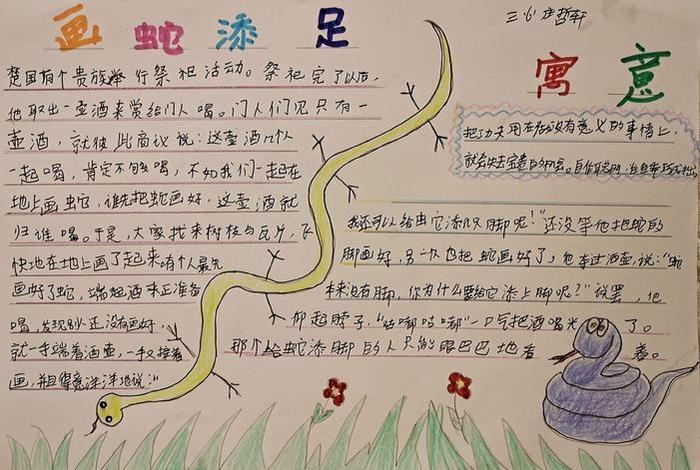 画蛇添足
三(6) 哲轩
楚国有个贵族举行祭祀活动。祭祀完了以后,
他取出一壶酒来赏给门人喝。门人们见只有一
壶酒,就彼此商议说:这壶酒几个人
一起喝,肯定不够喝,不如我们一起在
地上画蛇,谁先把蛇画好,这壶酒就
归谁喝。于是,大家找来树枝与瓦片,飞
快地在地上画了起来。有个人最先
画好了蛇,端起酒来正准备
喝,发现别人还没有画好,
就一手端着酒壶,一手又接着
画,并且得意洋洋地说:“
我还可以给蛇它添几只脚呢!”还没等他把蛇的
脚画好,另一人也把蛇画好了,他夺过酒壶,说:“蛇
本来没有脚,你为什么要给它添上脚呢?”说罢,他
仰起脖子,“咕嘟咕嘟”一口气把酒喝光了。
那个给蛇添脚的人只能眼巴巴地看着。
寓意
把功夫用在没有意义的事情上,
就会失去宝贵的机会。自作聪明,